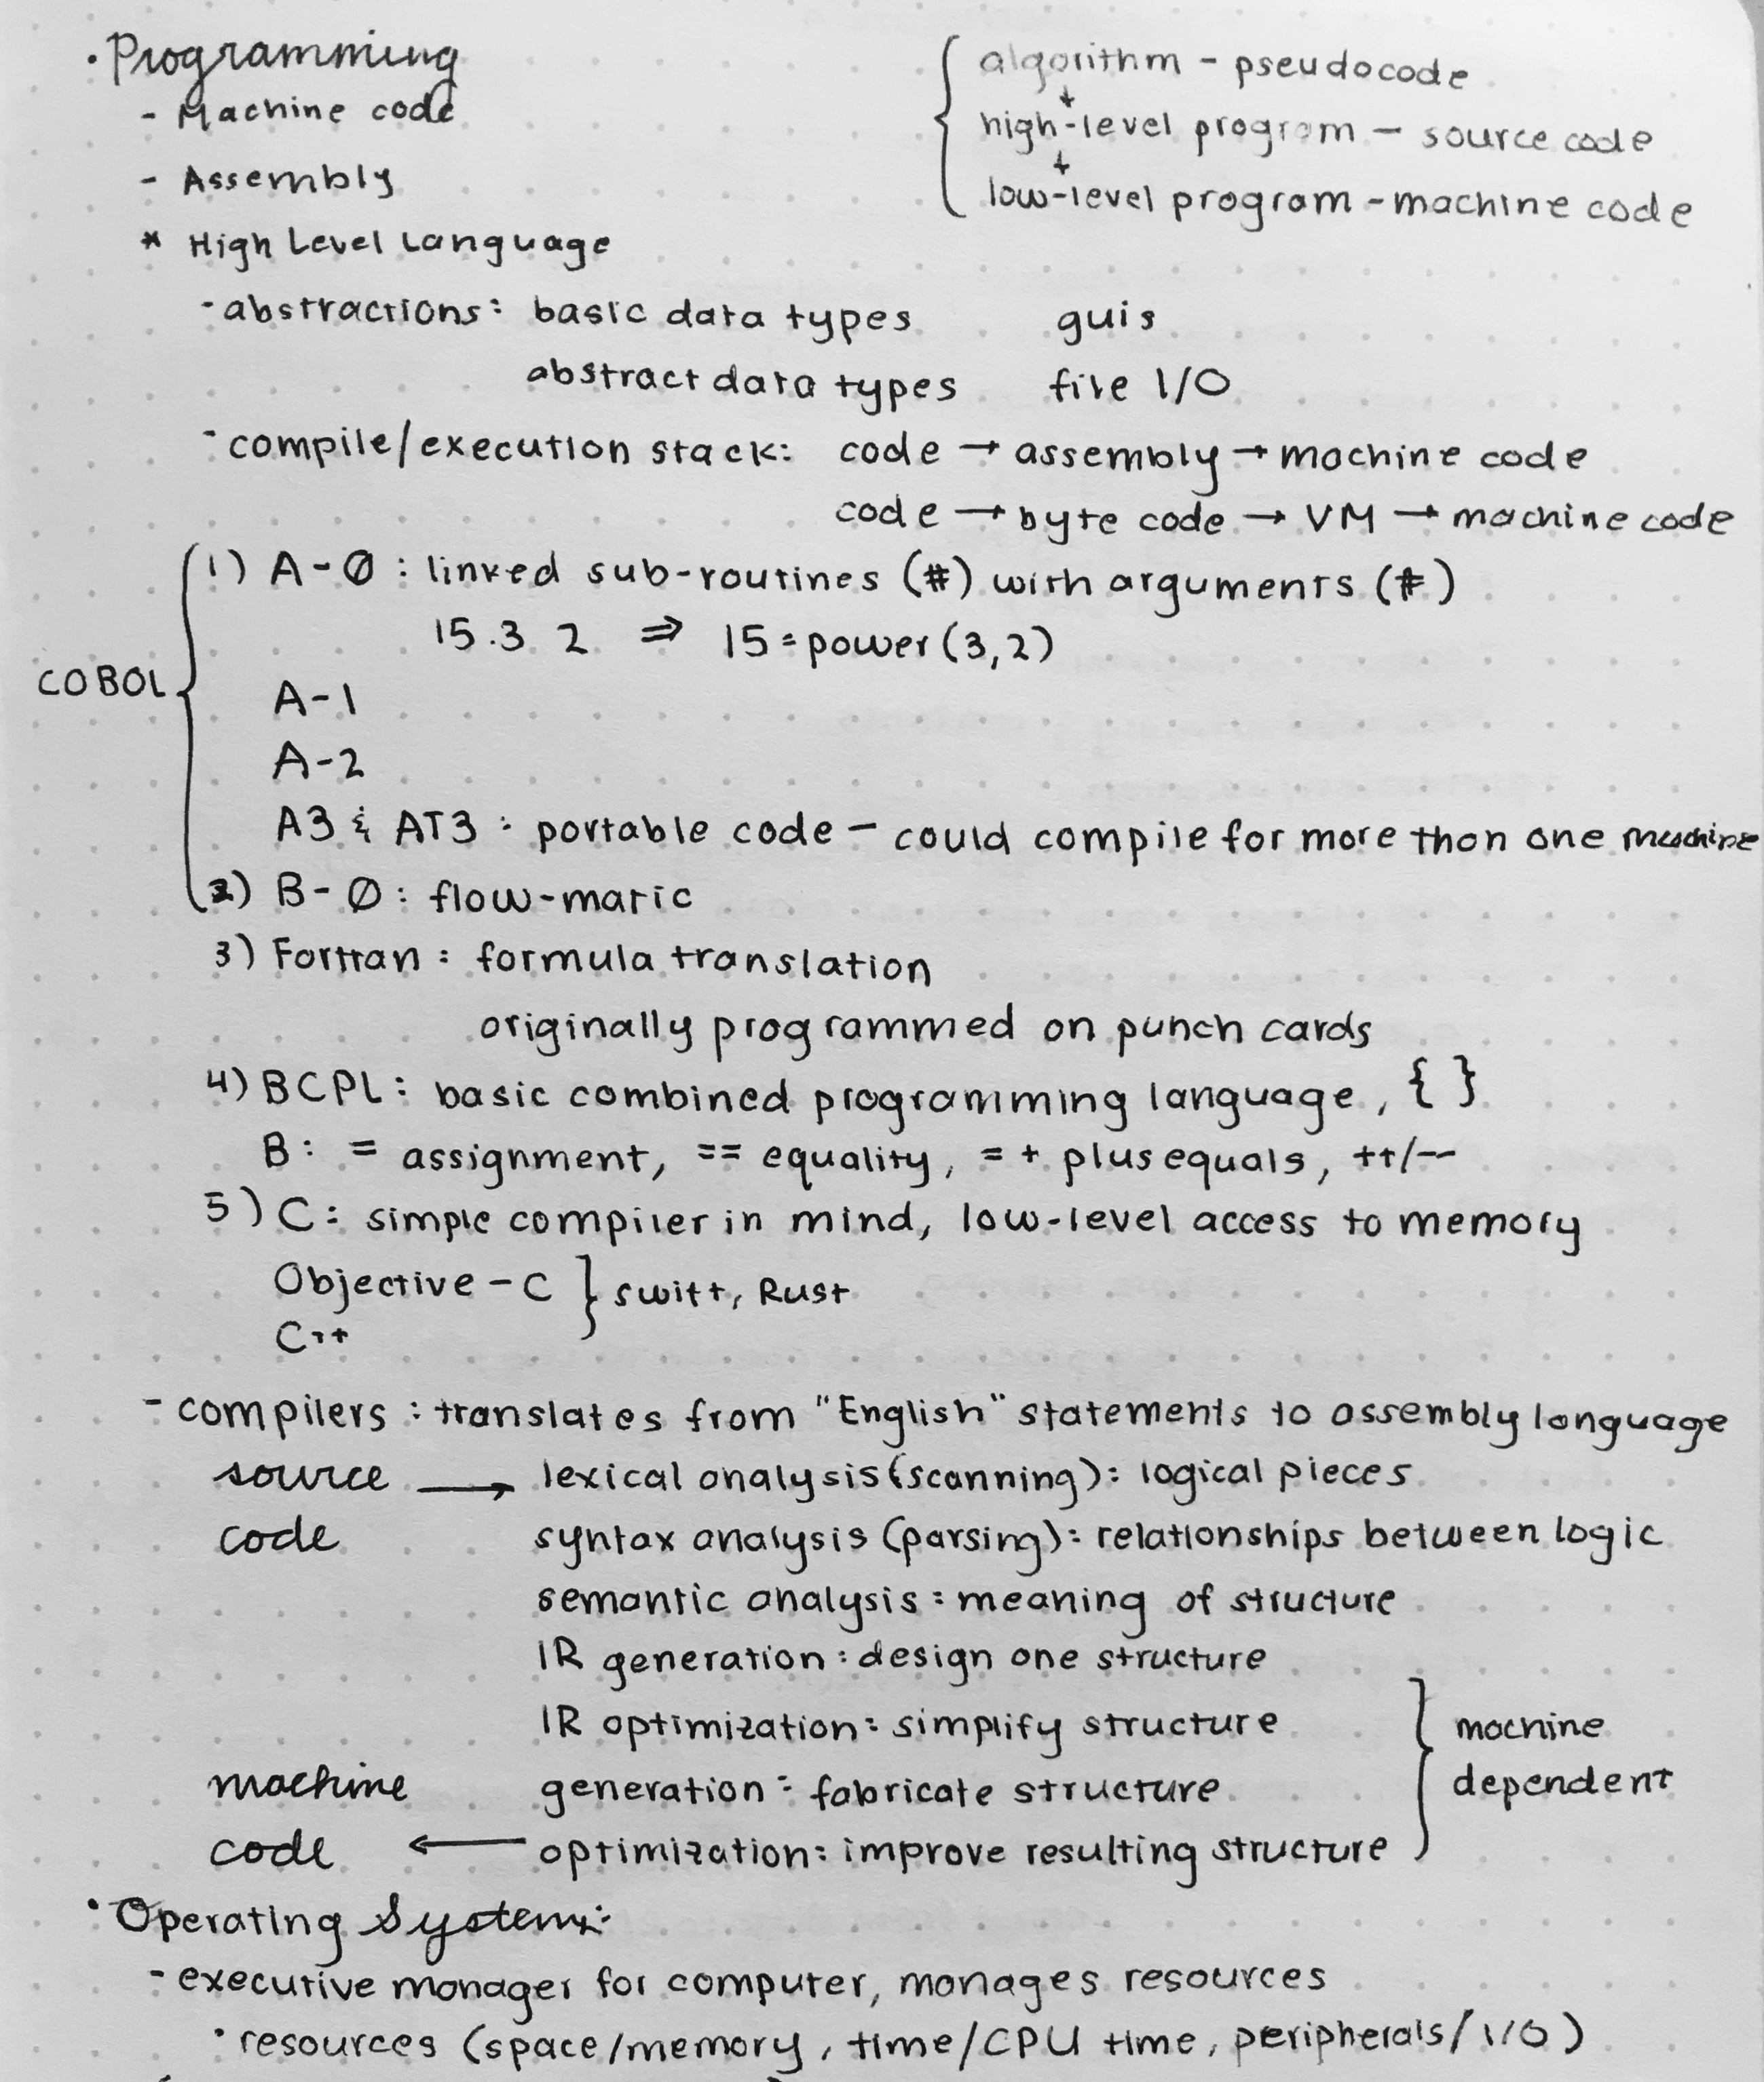 • Programming
- Machine code
- Assembly
{ algorithm - pseudocode
↓
high-level program - source code
↓
low-level program - machine code
* High Level Language
- abstractions: basic data types guis
abstract data types file I/O
- compile/execution stack: code → assembly → machine code
code → byte code → VM → machine code
COBOL {
1) A-Ø : linked sub-routines (#) with arguments (#)
15.3 2 ⇒ 15 = power(3,2)
A-1
A-2
A3 & AT3 : portable code - could compile for more than one machine
2) B-Ø : flow-matic
3) Fortran : formula translation
originally programmed on punch cards
4) BCPL : basic combined programming language, { }
B: = assignment, == equality, =+ plus equals, ++/--
5) C: simple compiler in mind, low-level access to memory
Objective-C } swift, Rust
C++
- compilers : translates from "English" statements to assembly language
source → lexical analysis (scanning): logical pieces
code syntax analysis (parsing): relationships between logic
semantic analysis: meaning of structure
IR generation: design one structure
IR optimization: simplify structure } machine
machine generation: fabricate structure dependent
code ← optimization: improve resulting structure
• Operating Systems:
- executive manager for computer, manages resources
• resources (space/memory, time/CPU time, peripherals/I/O)